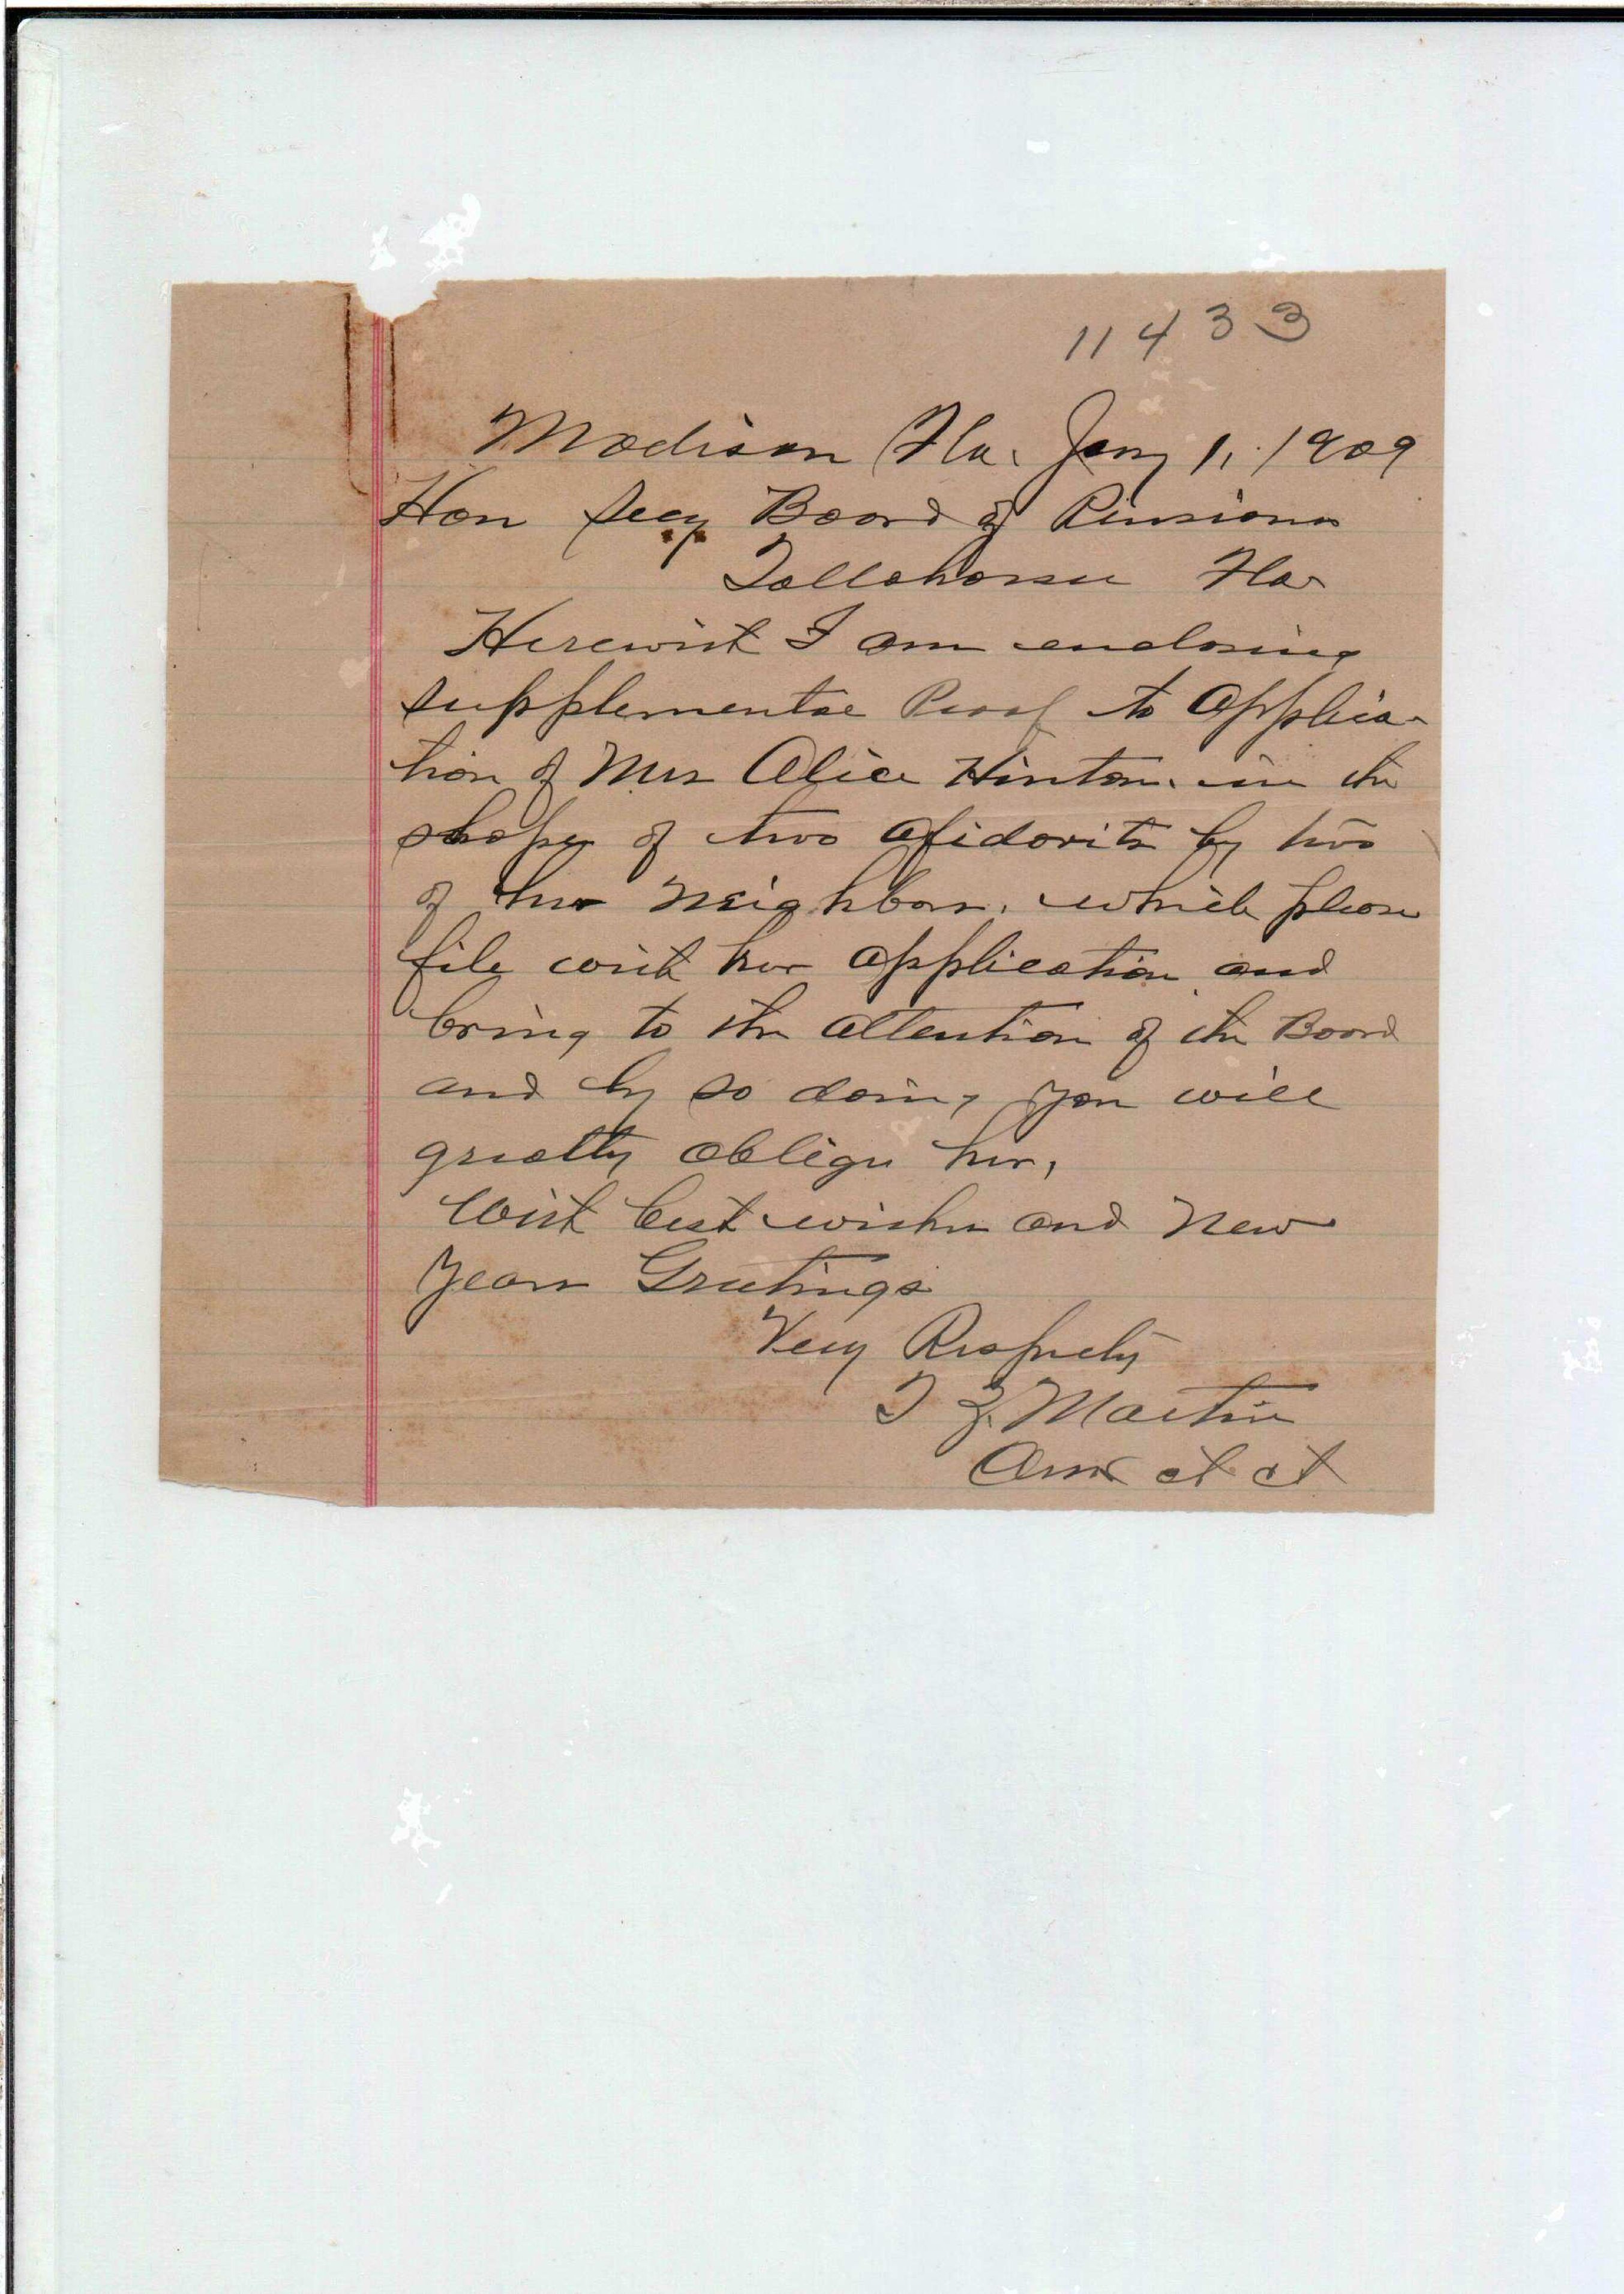 11433
Madison Fla. Jany 1, 1909
Hon Secy Board of Pensions
Tallahassee Fla
Herewith I am enclosing
supplemental Proof to applica-
tion of Mrs Alice Hinton. in the
shape of two afidavits by two
of her Neighbors. which please
file with her application and
bring to the attention of the Board
and by so doing you will
greatly oblige her,
With best wishes and New
Years Greetings
Very Respectly
T Z. Martin